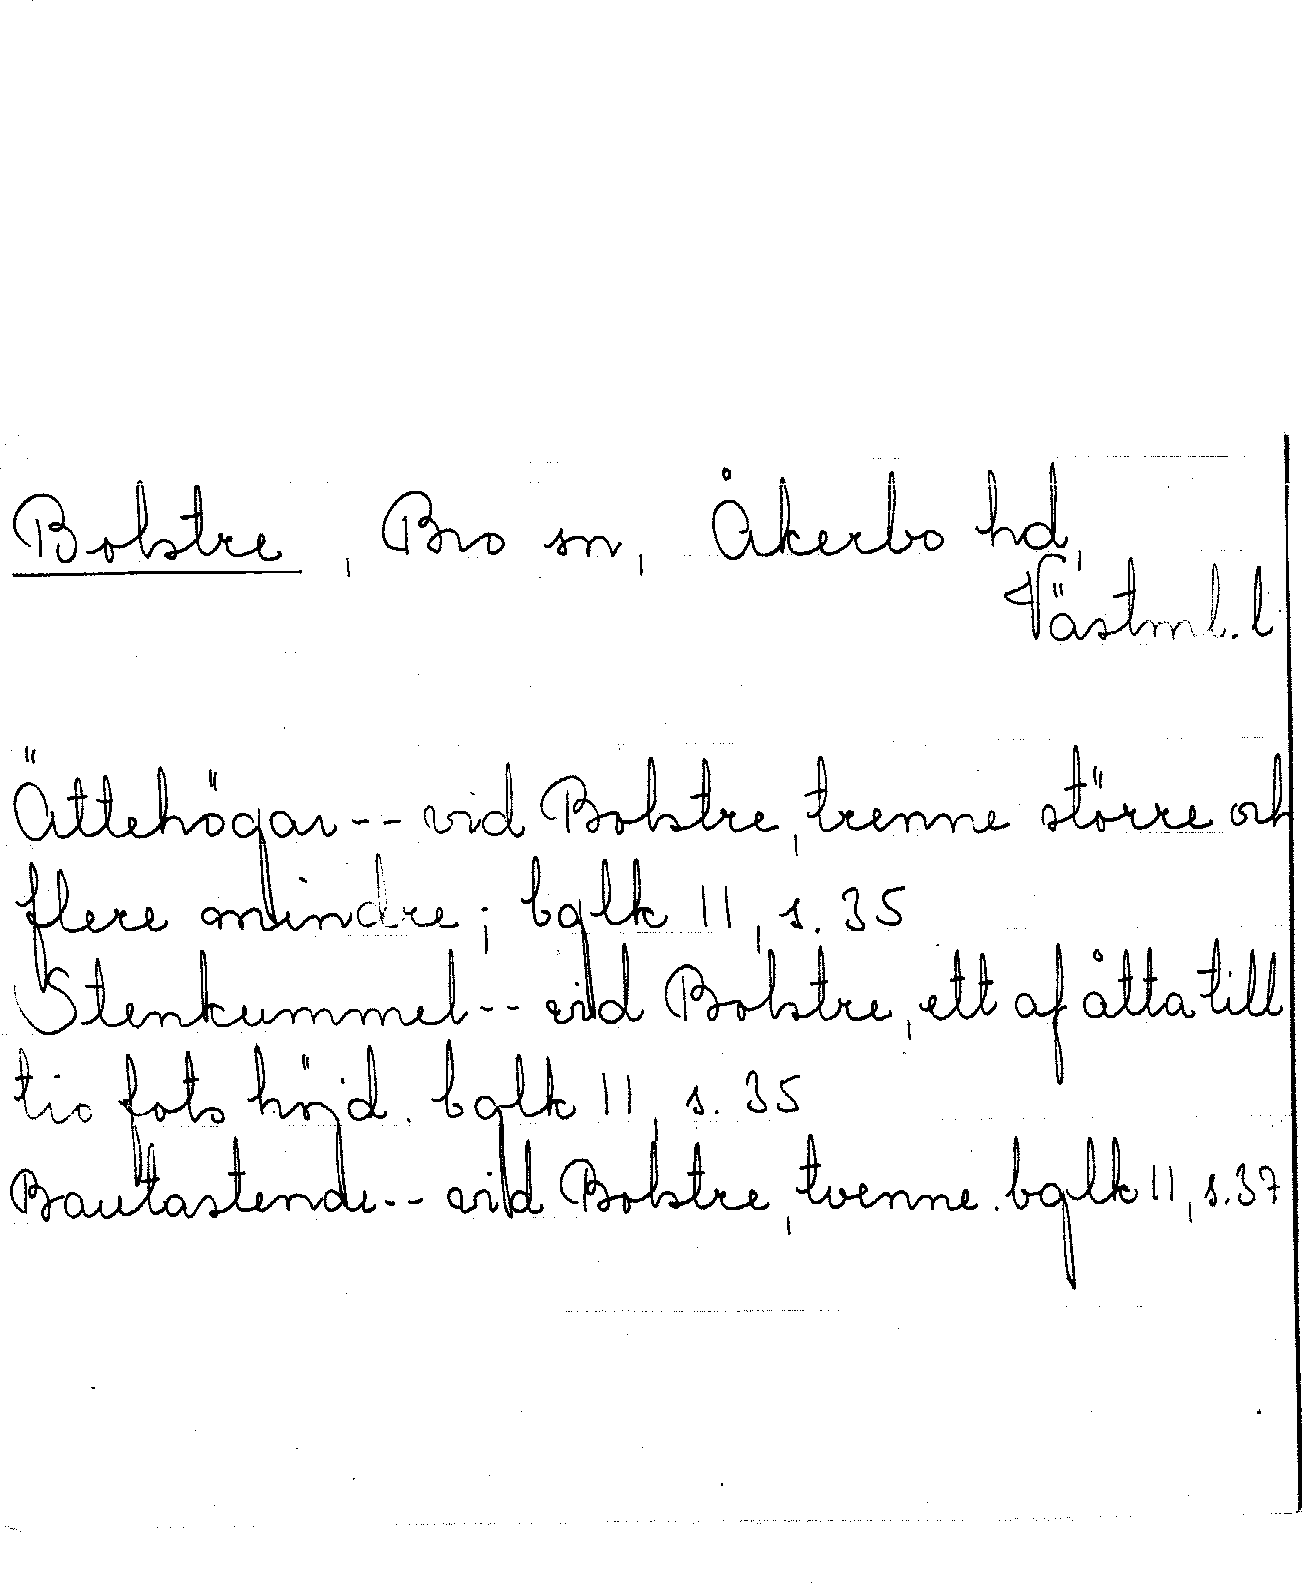 Bolstre, Bro sn, Åkerbo hd,
Västml. l
Ättehögar -- vid Bolstre, trenne större och
flere mindre; bglk 11, s. 35
Stenkummel -- vid Bolstre, ett af åtta till
tio fots höjd. bglk 11, s. 35
Bautastende -- vid Bolstre, tvenne. bglk 11, s. 37